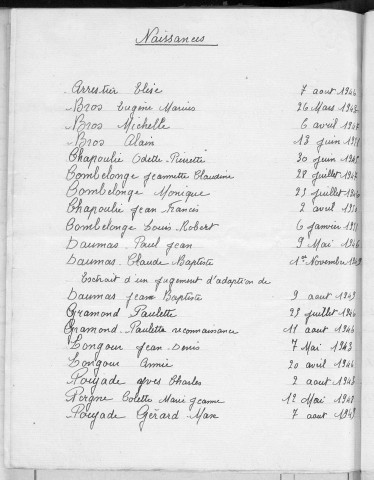 Naissances
Arrestier Elise 7 aout 1946
Bros Eugène Marius 26 Mars 1943
Bros Michelle 6 avril 1947
Bros Alain 13 juin
Chapoulié Odette Pierrette 30 juin 1945
Combelonge Jeannette Claudine 28 juillet 1947
Combelonge Monique 23 juillet 1946
Chapoulié Jean Francis 2 avril
Combelonge Louis Robert 6 janvier
Daumas Paul Jean 9 Mai 1946
Daumas Claude Baptiste 1er Novembre 1949
Extrait d'un jugement d'adoption de
Daumas Jean Baptiste 9 aout 1949
Gramond Paulette 23 juillet 1946
Gramond Paulette reconnaissance 11 aout 1946
Longour Jean Denis 7 Mai 1943
Longour Annie 20 avril 1946
Pouyade Yves Charles 2 aout 1943
Porgne Colette Marie Jeanne 12 Mai 1948
Pouyade Gérard Max 7 aout 1949